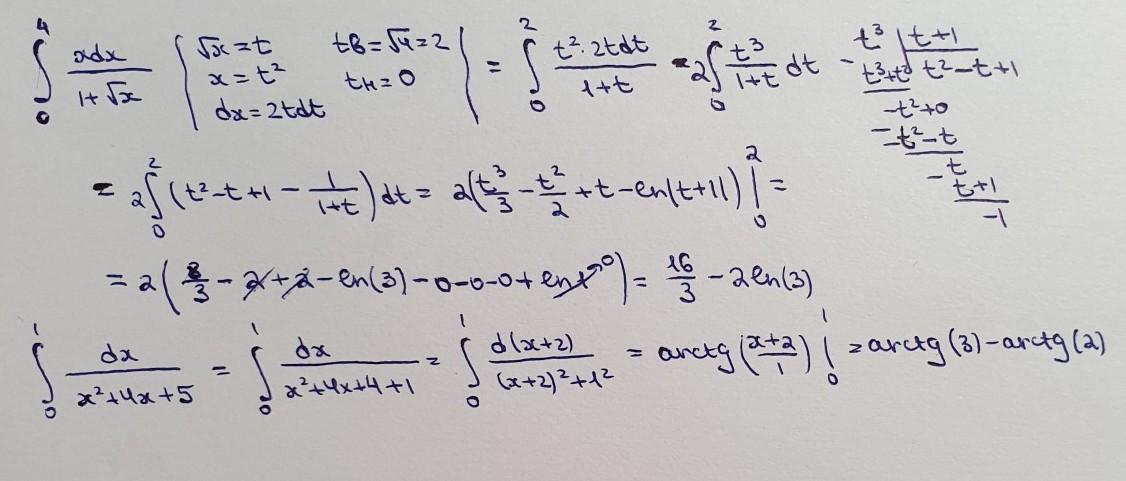 ∫₀⁴ xdx/(1+√x) | √x = t  tв = √4 = 2 | = ∫₀² t²·2tdt/(1+t) = 2∫₀² t³/(1+t) dt
x = t²  tн = 0
dx = 2tdt
t³ | t+1
t³+t² | t²-t+1
-t²+0
-t²-t
t
t+1
-1
= 2∫₀² (t²-t+1 - 1/(1+t)) dt = 2(t³/3 - t²/2 + t - ln|t+1|) |₀² =
= 2(8/3 - 2 + 2 - ln(3) - 0 - 0 - 0 + ln1→0) = 16/3 - 2ln(3)
∫₀¹ dx/(x²+4x+5) = ∫₀¹ dx/(x²+4x+4+1) = ∫₀¹ d(x+2)/((x+2)²+1²) = arctg((x+2)/1) |₀¹ = arctg(3) - arctg(2)